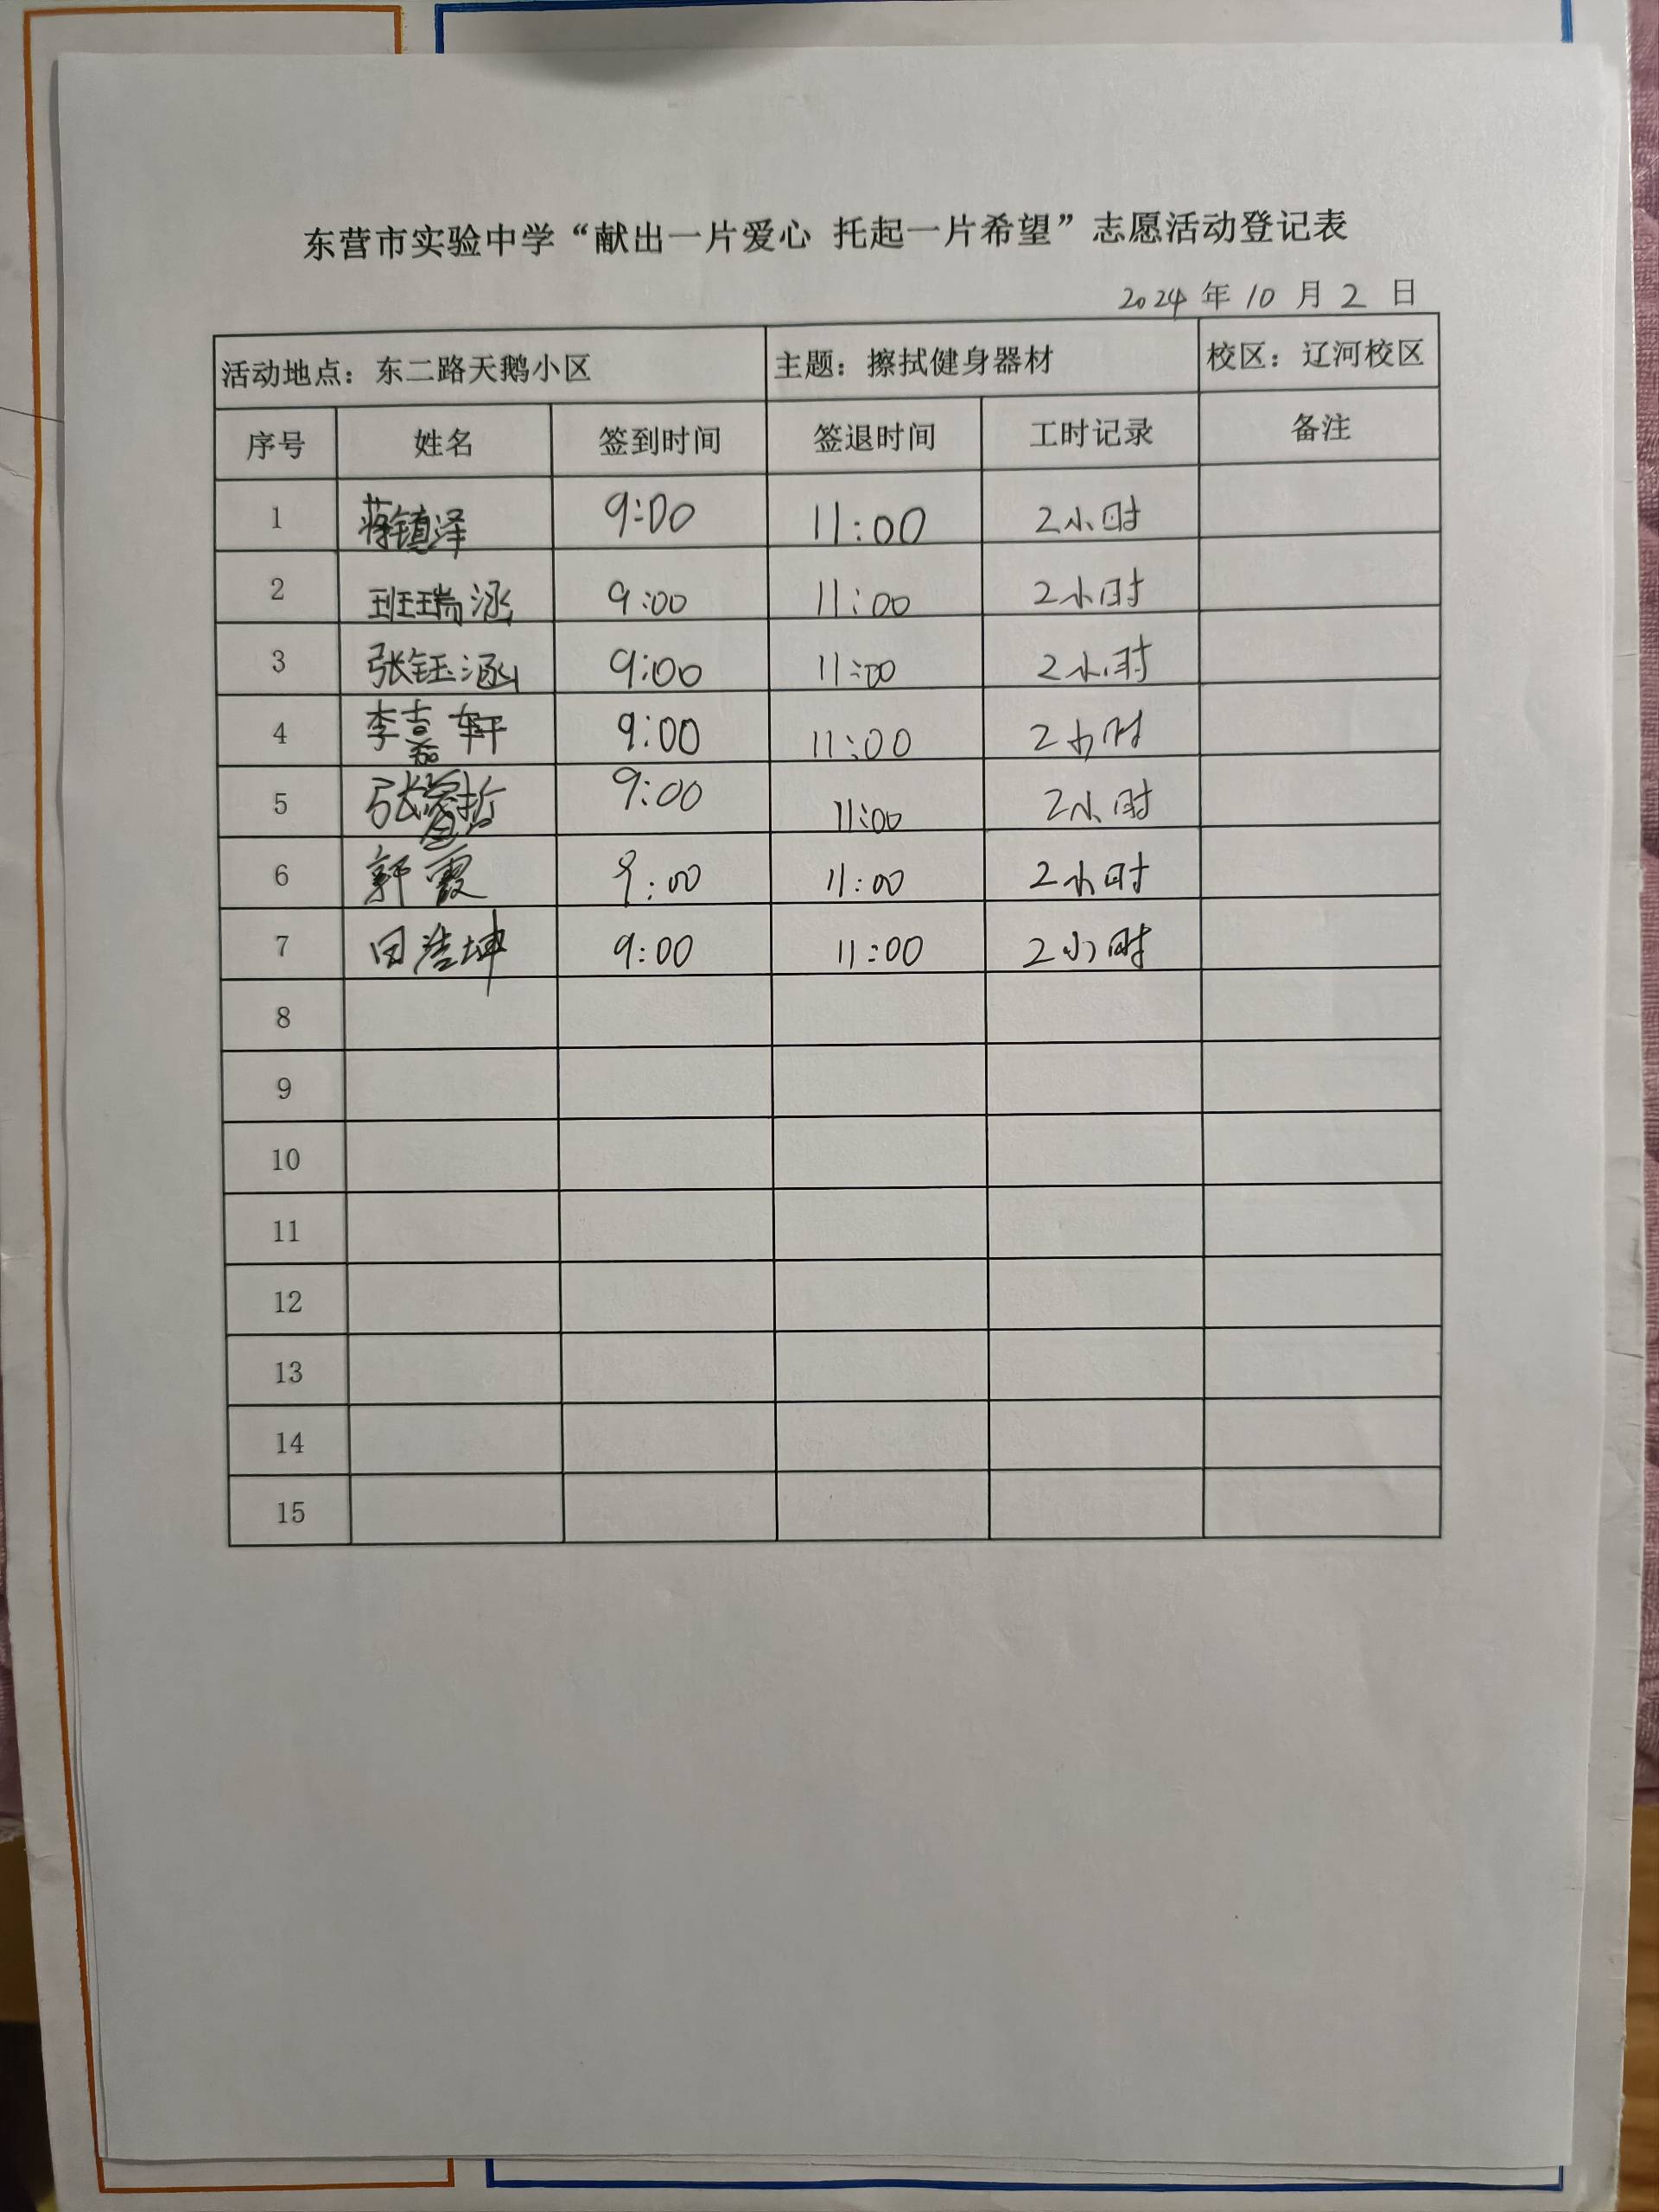 东营市实验中学“献出一片爱心 托起一片希望”志愿活动登记表
2024 年 10 月 2 日
活动地点：东二路天鹅小区 主题：擦拭健身器材 校区：辽河校区
序号 姓名 签到时间 签退时间 工时记录 备注
1 蒋镇泽 9:00 11:00 2小时
2 班瑞涵 9:00 11:00 2小时
3 张钰涵 9:00 11:00 2小时
4 李嘉轩 9:00 11:00 2小时
5 张 哲 9:00 11:00 2小时
6 郭霞 9:00 11:00 2小时
7 田浩坤 9:00 11:00 2小时
8
9
10
11
12
13
14
15